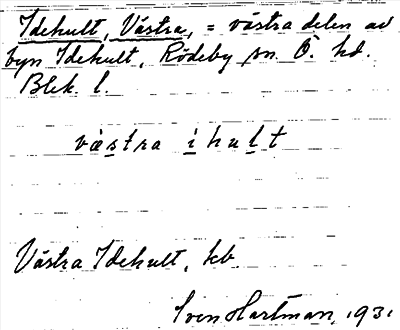 Idehult, Västra, = västra delen av
byn Idehult, Rödeby sn. Ö. hd.
Blek. l.
væstra ihult
Västra Idehult, hb
Sven Hartman, 1931